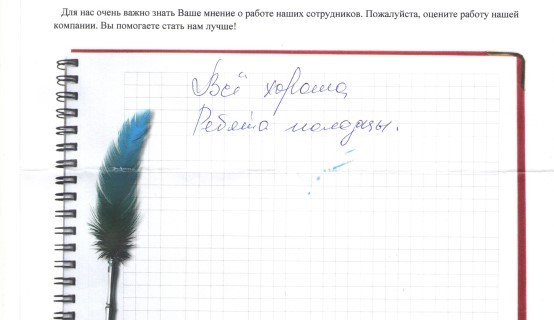 Для нас очень важно знать Ваше мнение о работе наших сотрудников. Пожалуйста, оцените работу нашей
компании. Вы помогаете стать нам лучше!
Всё хорошо
Ребята молодцы.